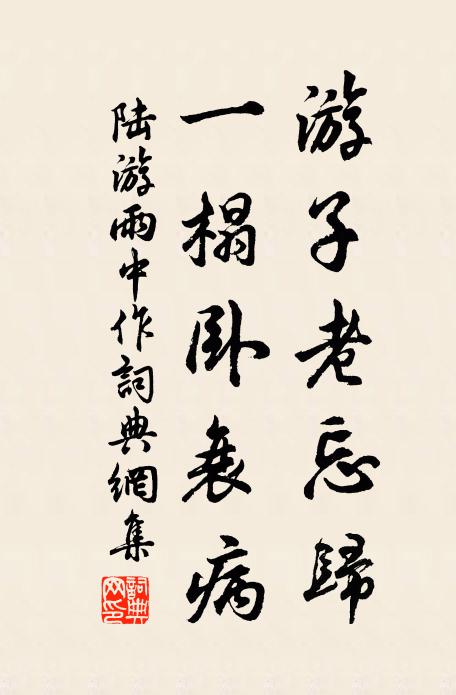 游子老忘歸
一榻卧衰病
陸游雨中作詞典網集
詞典网印